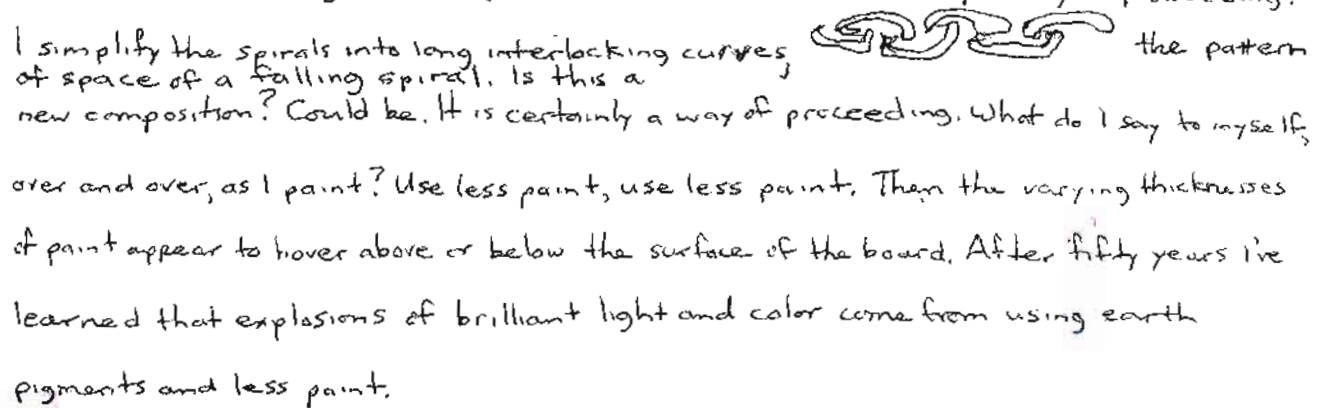 I simplify the spirals into long interlocking curves, the pattern
of space of a falling spiral. Is this a
new composition? Could be. It is certainly a way of proceeding. What do I say to myself,
over and over, as I paint? Use less paint, use less paint. Then the varying thicknesses
of paint appear to hover above or below the surface of the board. After fifty years I've
learned that explosions of brilliant light and color come from using earth
pigments and less paint.